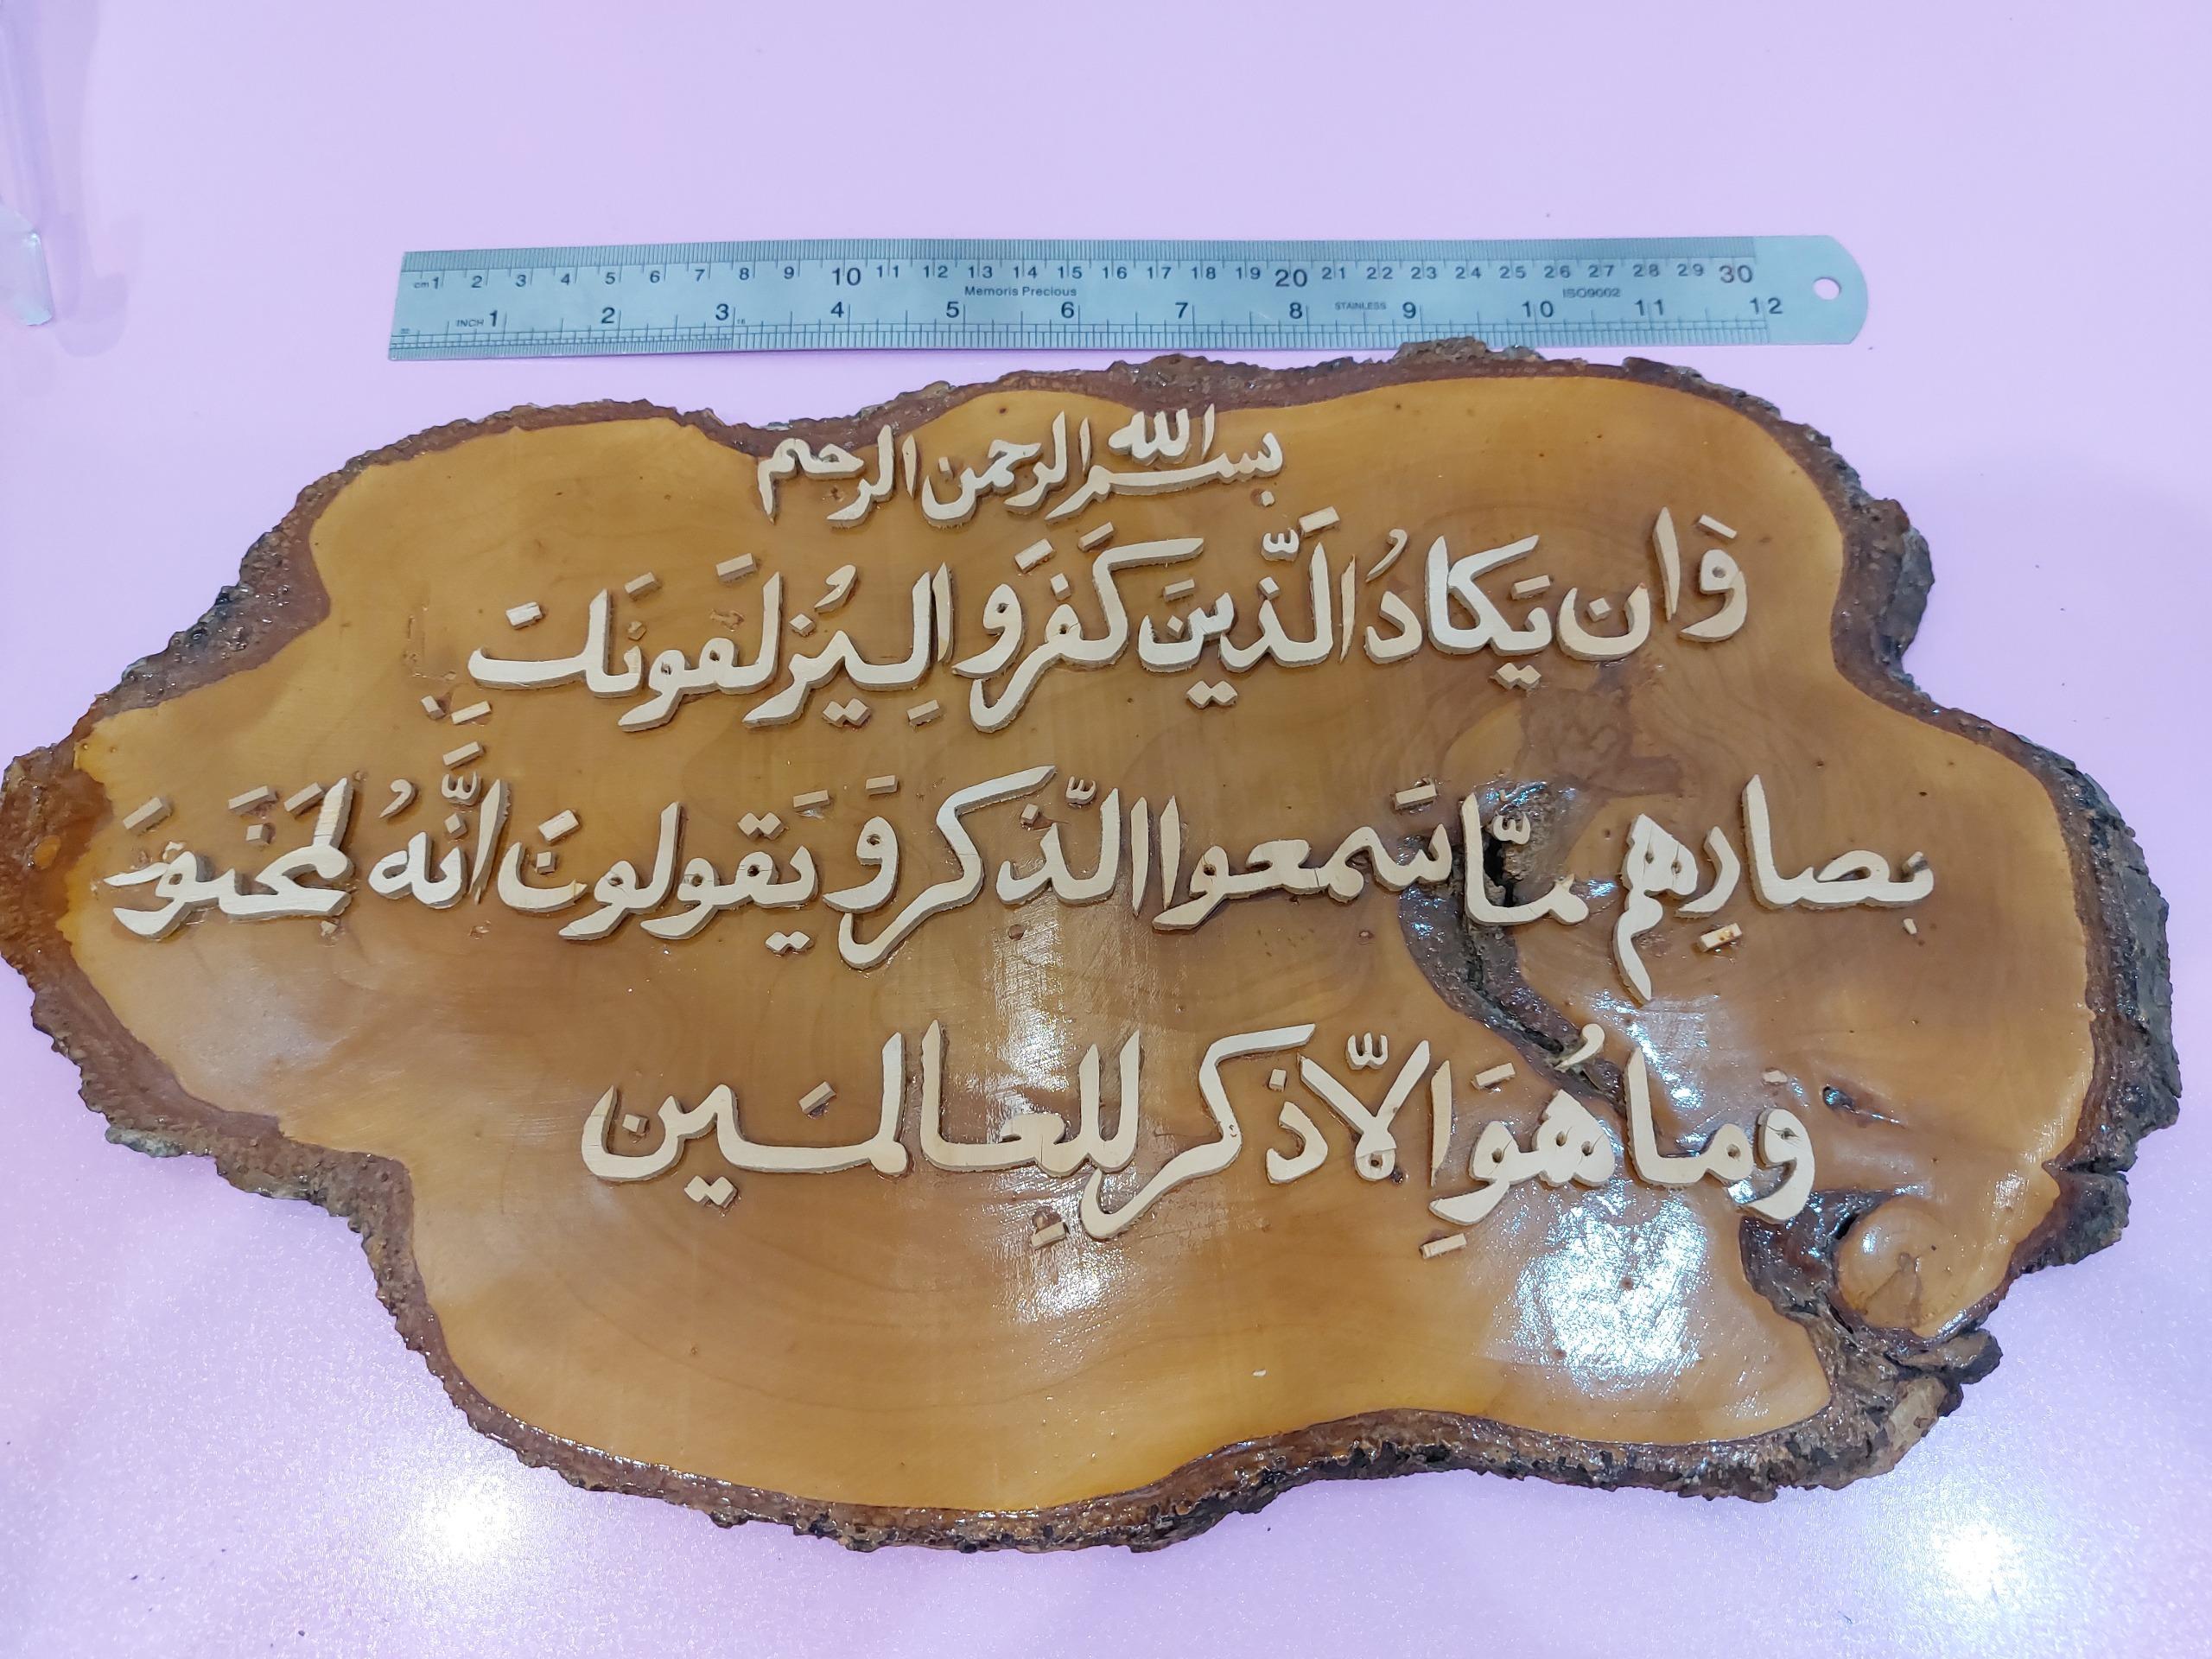 cm 1 2 3 4 5 6 7 8 9 10 11 12 13 14 15 16 17 18 19 20 21 22 23 24 25 26 27 28 29 30
Memoris Precious ISO9002
INCH 1 2 3 4 5 6 7 8 STAINLESS 9 10 11 12
بسم الله الرحمن الرحیم
وَان یَکادُ الَّذینَ کَفَرَوالِیُزلَفونَک
بصارِهم لمّا سَمعوا الذّکر وَ یَقولونَ اِنَّهُ
وَما هُوَ اِلّا ذکر لِلعالمَین